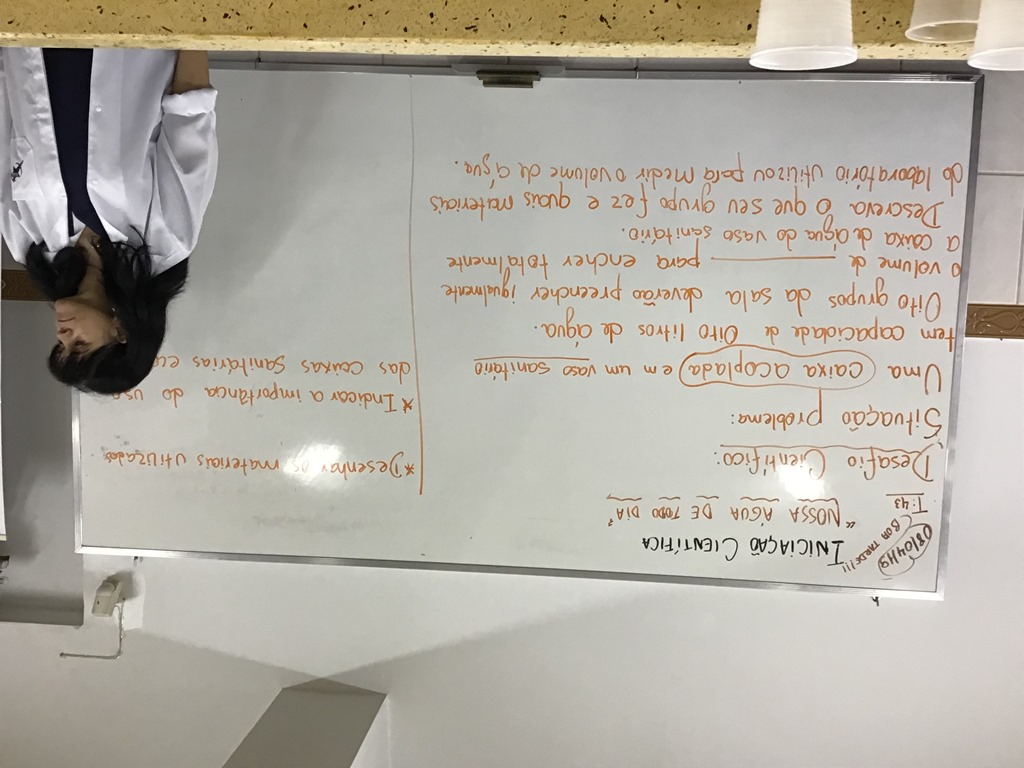 08/04/19
BOA TARDE!!!
T: 43
INICIAÇÃO CIENTÍFICA
"NOSSA ÁGUA DE TODO DIA"
Desafio Científico:
Situação problema:
Uma caixa acoplada em um vaso sanitário
tem capacidade de Oito litros de água.
Oito grupos da sala deverão preencher igualmente
o volume de ______ para encher totalmente
a caixa de água do vaso sanitário.
Descreva o que seu grupo fez e quais materiais
do laboratório utilizou para medir o volume de água.
*Desenhar os materiais utilizados
*Indicar a importância do uso
das caixas sanitárias